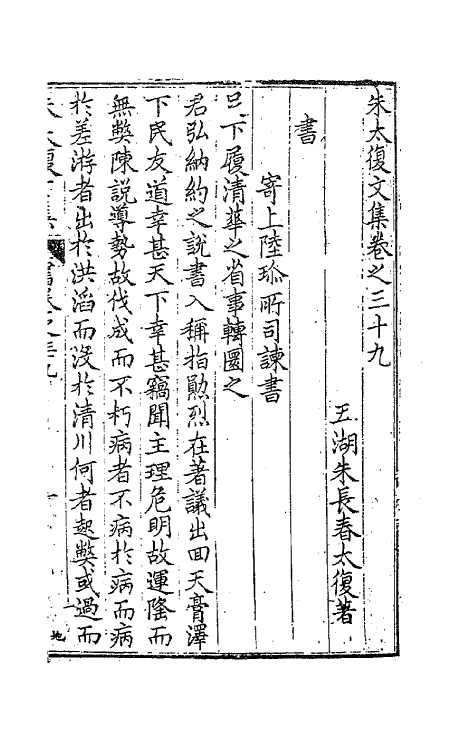 朱太復文集卷之三十九
五湖朱長春太復著
書
寄上陸珎所司諫書
吕下履清華之省事轉圜之
君弘納約之說書入稱指勛烈在著議出回天膏澤
下民友道幸甚天下幸甚竊聞主理危明故運隆而
無弊陳說導勢故伐成而不朽病者不病於病而病
於差游者出於洪滔而沒於清川何者起弊或過而